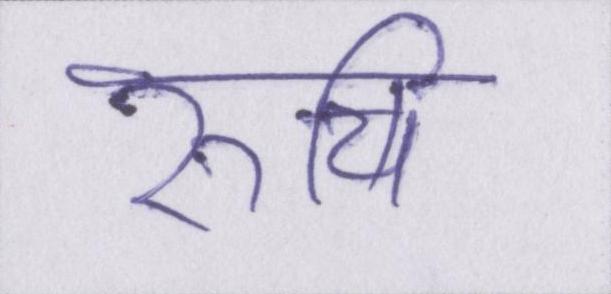 रुचि